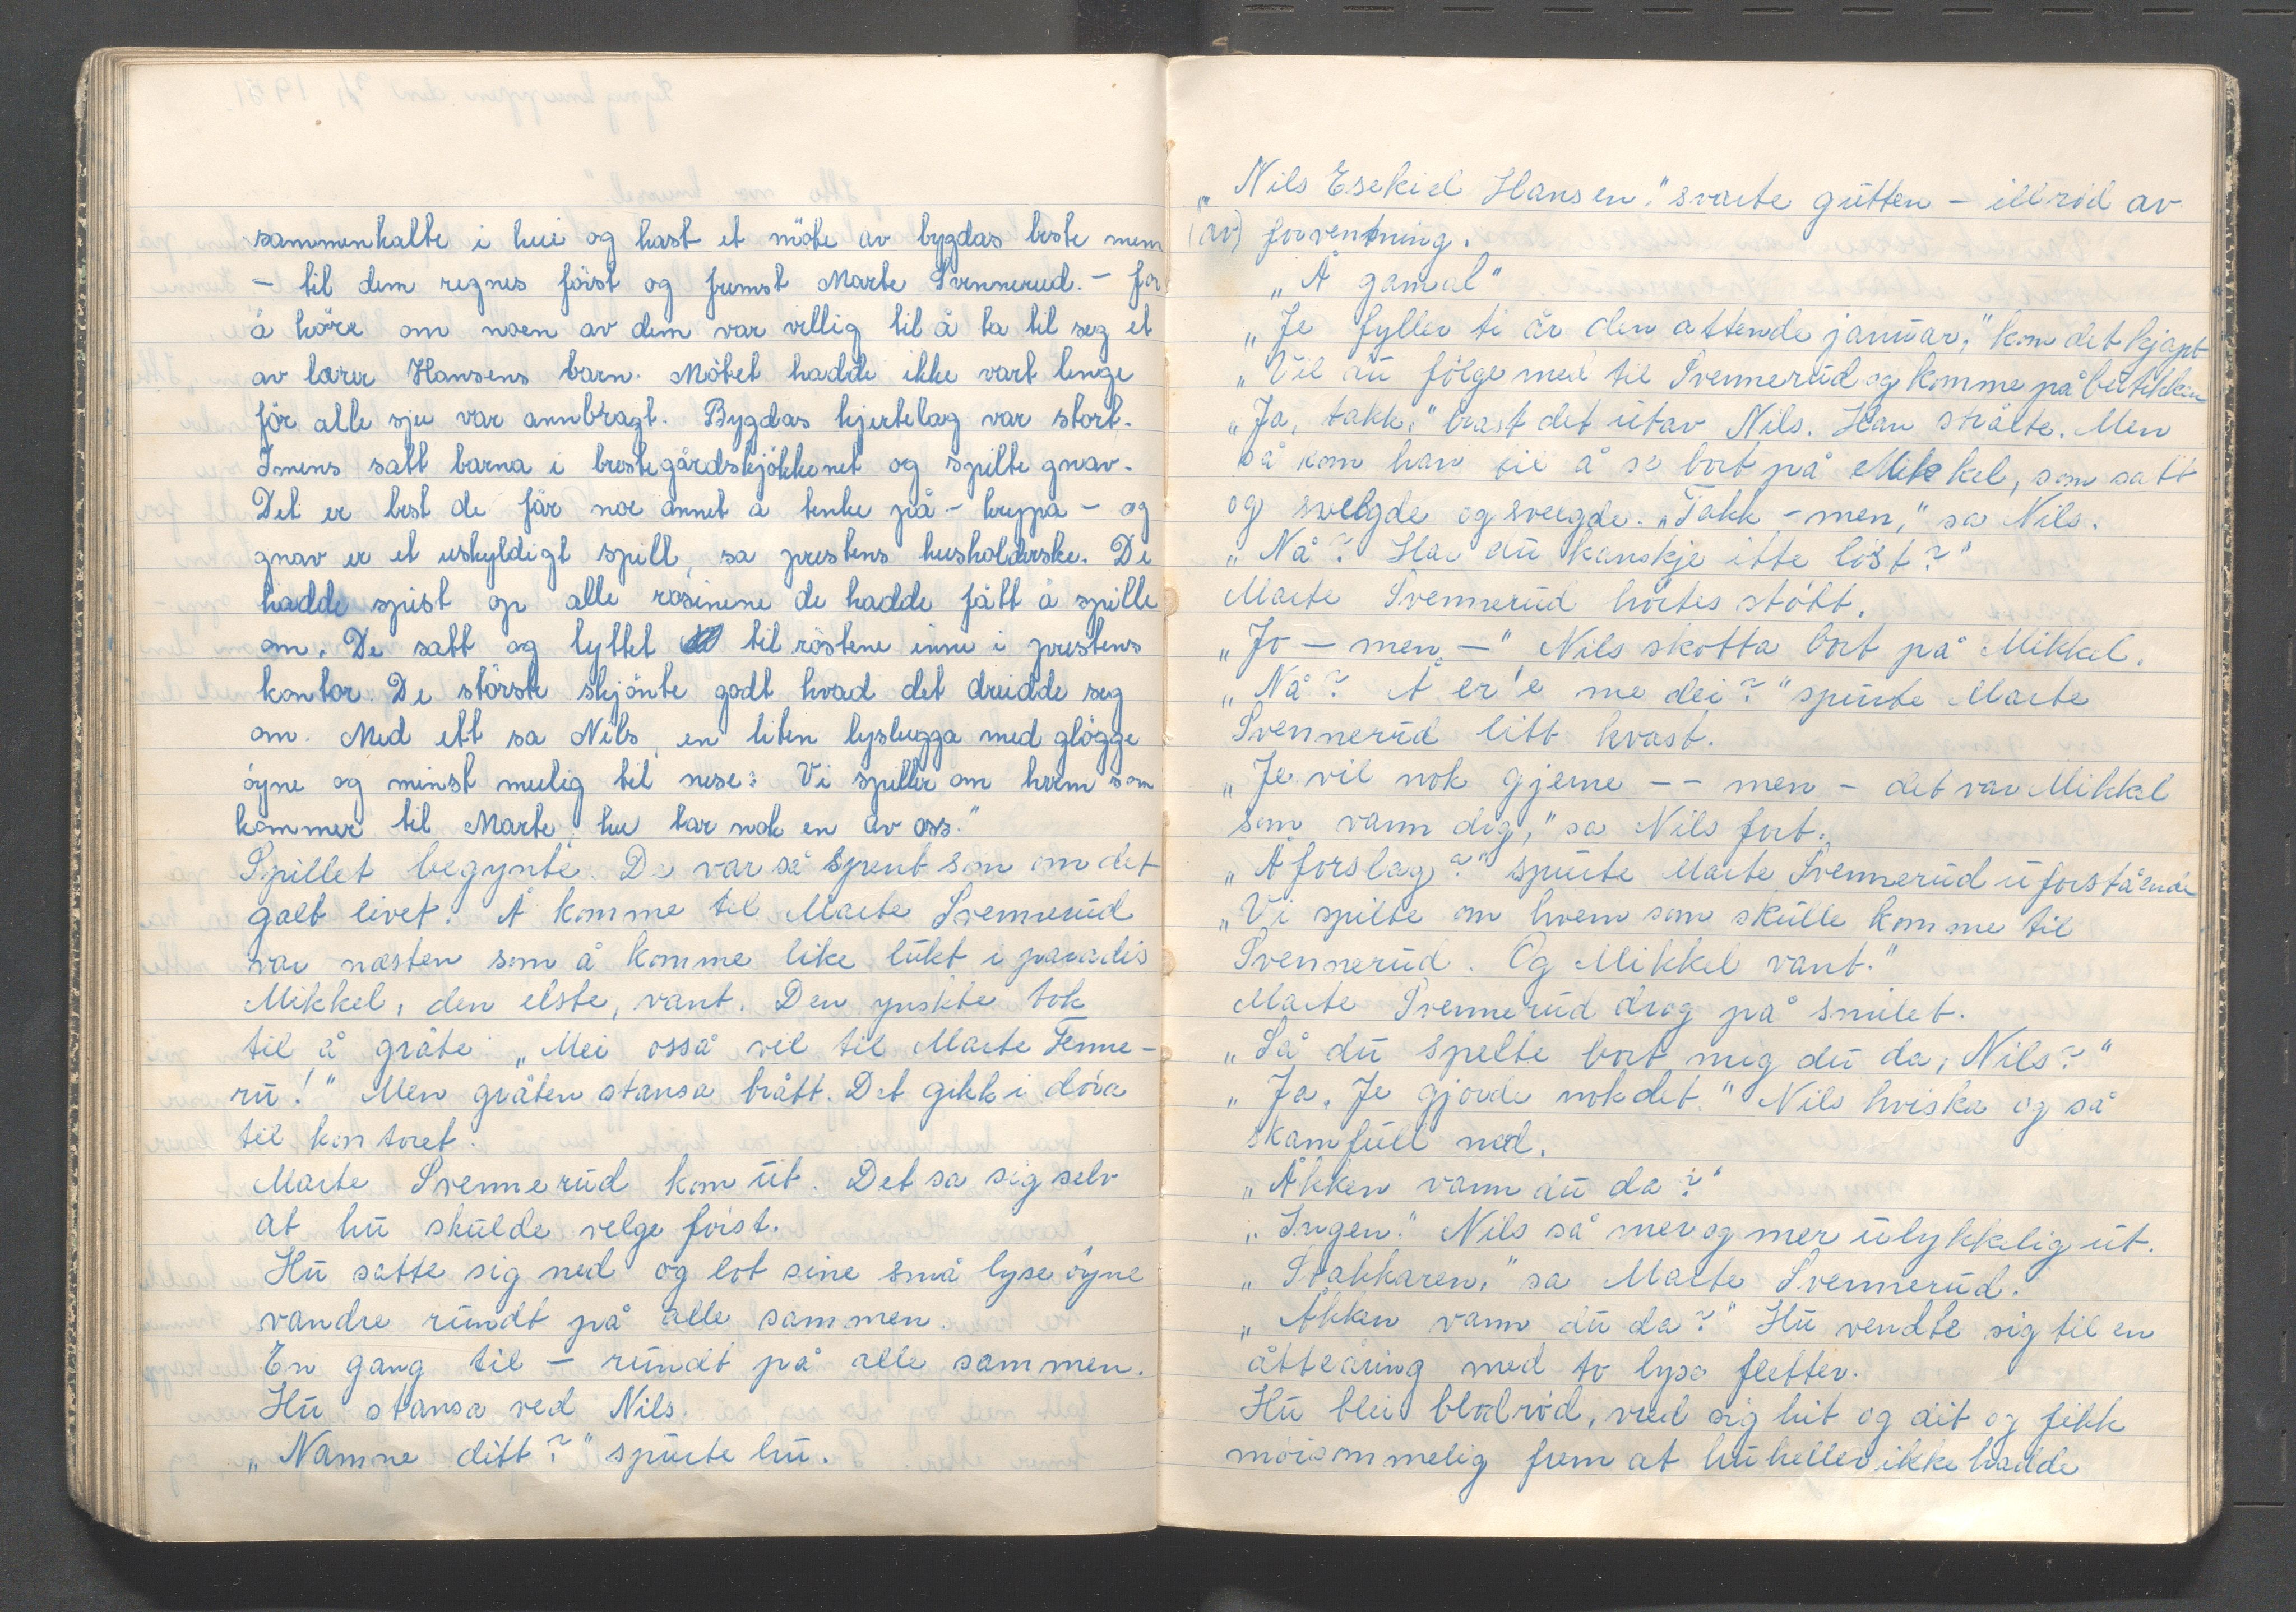 sammenkalte i hui og hast et möte av bygdas beste menn
- til dem regnes först og fremst Marte Svennerud. - for
å höre om noen av dem var villig til å ta til seg et
av lærer Hansens barn. Mötet hadde ikke vart lenge
för alle sju var annbragt. Bygdas hjertelag var stort.
Imens satt barna i prestegårdskjökkenet og spilte gnav.
Det er best de får noe annet a tenke på - kryppa - og
gnav er et uskyldigt spill, sa prestens husholderske. De
hadde spist op alle rosinene de hadde fått å spille
om. De satt og lyttet til röstene inne i prestens
kontor. De störste skjönte godt hvad det dreidde seg
om. Med ett sa Nils, en liten lyslugga med glögge
öyne og minst mulig til nese: Vi spiller om hvem som
kommer til Marte, hu tar nok en av oss."
Spillet begynte. De var så spent som om det
galt livet. Å komme til Marte Svennerud
var næsten som å komme like lukt i paradis
Mikkel, den elste, vant. Den yngste tok
til å gråte „Mei osså vil til Marte Fenne-
ru!" Men gråten stansa brått. Det gikk i döra
til kontoret.
Marte Svennerud kom ut. Det sa sig selv
at hu skulde velge först.
Hu satte sig ned og lot sine små lyse öyne
vandre rundt på alle sammen.
En gang til - rundt på alle sammen.
Hu stansa ved Nils.
„Namne ditt?" spurte hu.
„Nils Esekiel Hansen." svarte gutten - illröd av
(av) forventning.
„Å gamal"
„Je fyller ti år den attende januar," kom det kjapt
„Vil du fölge med til Svennerud og komme på butikken
„Ja, takk," brast det utav Nils. Han strålte. Men
så kom han til å se bort på Mikkel, som satt
og svelgde og svelgde. „Takk - men," sa Nils.
„Nå? Har du kanskje itte löst?"
Marte Svennerud hörtes stött.
„Jo - men -" Nils skotta bort på Mikkel.
„Nå? Å er'e me dei?" spurte Marte
Svennerud litt kvast.
„Je vil nok gjerne -- men - det var Mikkel
som vann dig," sa Nils fort.
„Å forslag?" spurte Marte Svennerud uforstående
„Vi spilte om hvem som skulle komme til
Svennerud. Og Mikkel vant."
Marte Svennerud drog på smilet.
„Så du spelte bort mig du da, Nils?"
„Ja. Je gjorde nok det." Nils hviska og så
skamfull ned.
„Åkken vann du da?"
„Ingen." Nils så mer og mer ulykkelig ut.
„Stakkaren," sa Marte Svennerud.
„Åkken vann du da?" Hu vendte sig til en
åtteåring med to lyse fletter.
Hu blei blodröd, vred sig hit og dit og fikk
möisommelig frem at hu heller ikke hadde